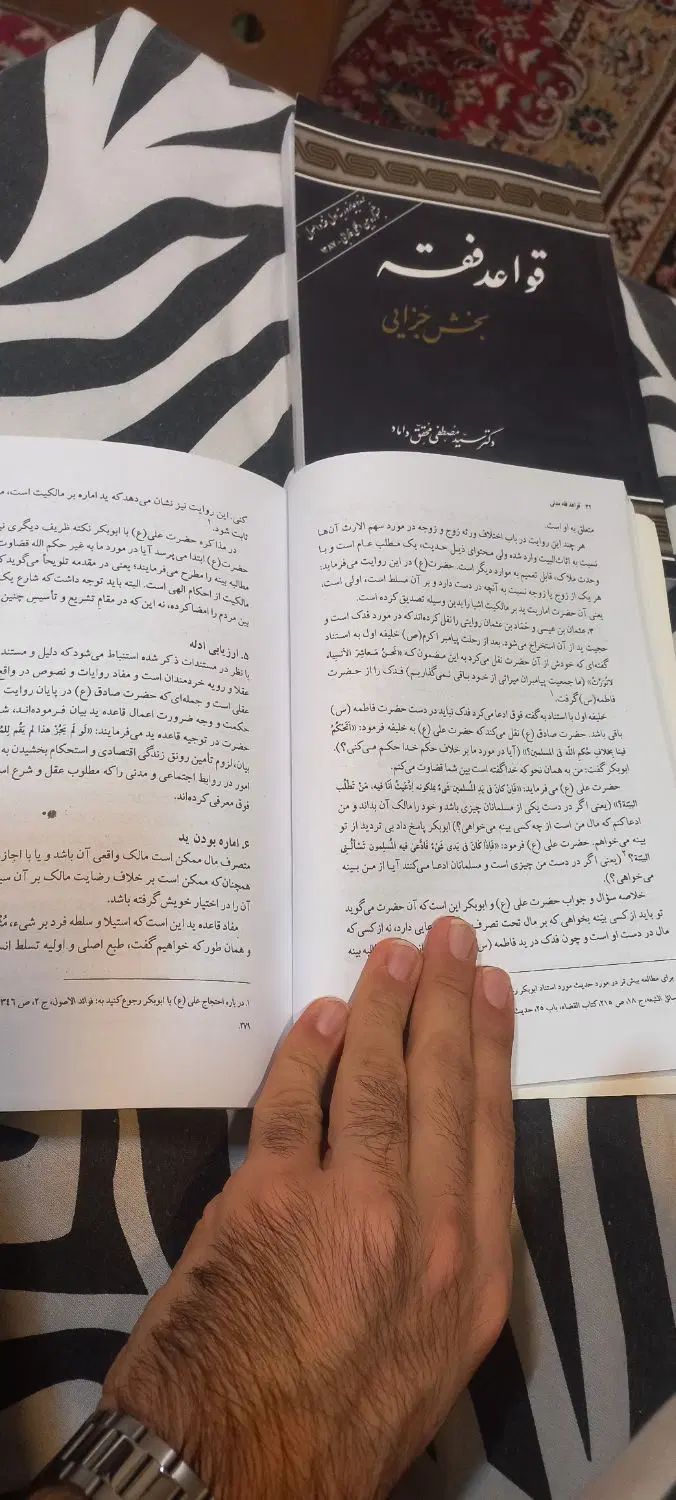 قواعد فقه
بخش جزایی
دکتر سید مصطفی محقق داماد
۳۶ قواعد فقه مدنی
متعلق به او است.
هر چند این روایت در باب اختلاف ورثه زوج و زوجه در مورد سهم الارث آن‌ها
نسبت به اثاث‌البیت وارد شده ولی محتوای ذیل حدیث، یک مطلب عام است و با
وحدت ملاک، قابل تعمیم به موارد دیگر است. حضرت(ع) در این روایت می‌فرماید:
هر یک از زوج یا زوجه نسبت به آنچه در دست دارد و بر آن مسلط است، اولی است.
یعنی آن حضرت اماریت ید بر مالکیت اشیا را بدین وسیله تصدیق کرده است.
۳. عثمان بن عیسی و حمّاد بن عثمان روایتی را نقل کرده‌اند که در مورد فدک است و
حجیت ید از آن استخراج می‌شود. بعد از رحلت پیامبر اکرم(ص) خلیفه اول به استناد
گفته‌ای که خودش از آن حضرت نقل می‌کرد به این مضمون که «نَحنُ مَعاشِرَ الأنبیاء
لانُوَرِّثْ» (ما جمعیت پیامبران میراثی از خود باقی نمی‌گذاریم) فدک را از حضرت
فاطمه(س) گرفت.۱
خلیفه اول با استناد به گفته فوق ادعا می‌کرد فدک نباید در دست حضرت فاطمه (س)
باقی باشد. حضرت صادق (ع) نقل می‌کند که حضرت علی (ع) به خلیفه فرمود: «اَتَحکُمُ
فینا بِخِلافِ حُکمِ اللّه فی المسلمین؟!» (آیا در مورد ما بر خلاف حکم خدا حکم می‌کنی؟).
ابوبکر گفت: من به همان نحو که خدا گفته است بین شما قضاوت می‌کنم.
حضرت علی (ع) می‌فرماید: «فَاِن کانَ فی یَدِ المُسلمین شَیءٌ یملکونه اِدَّعَیتُ اَنَا فیه، مَنْ تَطلُبُ
البَیِّنَة؟» (یعنی اگر در دست یکی از مسلمانان چیزی باشد و خود را مالک آن بداند و من
ادعا کنم که مال من است از چه کسی بینه می‌خواهی؟) ابوبکر پاسخ داد بی تردید از تو
بینه می‌خواهم. حضرت علی (ع) فرمود: «فَاِذا کانَ فی یَدی شَیءٌ فَادَّعی فیه المُسلمون تَسألُنی
البَیِّنة؟»۲ (یعنی اگر در دست من چیزی است و مسلمانان ادعا می‌کنند آیا از من بینه
می‌خواهی؟).
خلاصه سؤال و جواب حضرت علی (ع) و ابوبکر این است که آن حضرت می‌گوید
تو باید از کسی بینه بخواهی که بر مال تحت تصرف دارد، نه از کسی که
مال در دست او است و چون فدک در ید فاطمه (س) بینه
برای مطالعه بیش‌تر در مورد حدیث مورد استناد ابوبکر
ج ۱۸، ص ۲۱۵، کتاب القضاء، باب ۲۵، حدیث
کنی. این روایت نیز نشان می‌دهد که ید اماره بر مالکیت است،
ثابت شود.۱
در مذاکره حضرت علی(ع) با ابوبکر نکته ظریف دیگری
حضرت(ع) ابتدا می‌پرسد آیا در مورد ما به غیر حکم الله قضاوت
مطالبه بینه را مطرح می‌فرمایند؛ یعنی در مقدمه تلویحاً می‌گوید که
مالکیت از احکام الهی است. البته باید توجه داشت که شارع یک
بین مردم را امضا کرده، نه این که در مقام تشریع و تأسیس چنین
۵. ارزیابی ادله
با نظر در مستندات ذکر شده استنباط می‌شود که دلیل و مستند
عقلا و رویه خردمندان است و مفاد روایات و نصوص در
عقلی است و جمله‌ای که حضرت صادق (ع) در پایان روایت
حکمت و وجه ضرورت اعمال قاعده ید بیان فرموده‌اند،
حضرت در توجیه قاعده ید می‌فرمایند: «لَو لَم یَجُزْ هذا لَم یَقُم
بیان، لزوم تأمین رونق زندگی اقتصادی و استحکام بخشیدن به
امور در روابط اجتماعی و مدنی را که مطلوب عقل و شرع
فوق معرفی کرده‌اند.
۶. اماره بودن ید
متصرف مال ممکن است مالک واقعی آن باشد و یا با
همچنان‌که ممکن است بر خلاف رضایت مالک بر آن
آن را در اختیار خویش گرفته باشد.
مفاد قاعده ید این است که استیلا و سلطه فرد بر شیء،
و همان طور که خواهیم گفت، طبع اصلی و اولیه تسلط
۱. در باره احتجاج علی (ع) با ابوبکر رجوع کنید به: فوائد الاصول، ج ۲، ص ۳۴۶
۲۷۹.